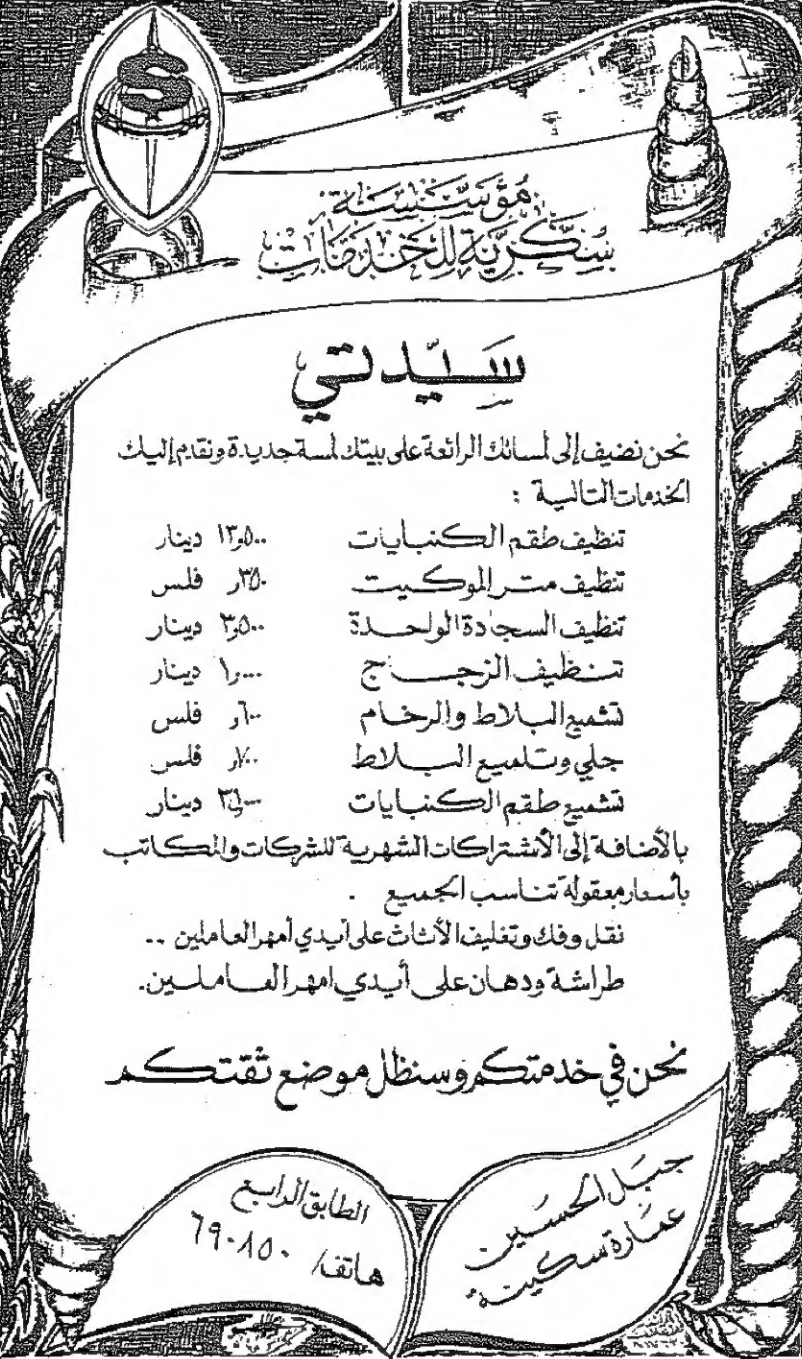 S
مؤسسة
سكرية للخدمات
سيدتي
نحن نضيف إلى لمساتك الرائعة على بيتك لمسة جديدة ونقدم إليك
الخدمات التالية :
تنظيف طقم الكنبايات ١٣٫٥٠٠ دينار
تنظيف متر الموكيت ٣٥٠ر فلس
تنظيف السجادة الواحدة ٣٫٥٠٠ دينار
تنظيف الزجاج ١٫٠٠٠ دينار
تشميع البلاط والرخام ٦٠٠ر فلس
جلي وتلميع البلاط ٧٠٠ر فلس
تشميع طقم الكنبايات دينار
بالأضافة إلى الأشتراكات الشهرية للشركات والمكاتب
بأسعار معقولة تناسب الجميع .
نقل وفك وتغليف الأثاث على أيدي أمهر العاملين ..
طراشة ودهان على أيدي امهر العاملين.
نحن في خدمتكم وسنظل موضع ثقتكم
جبل الحسين
عمارة سكينة
الطابق الرابع
هاتف/ ٦٩٠٨٥٠